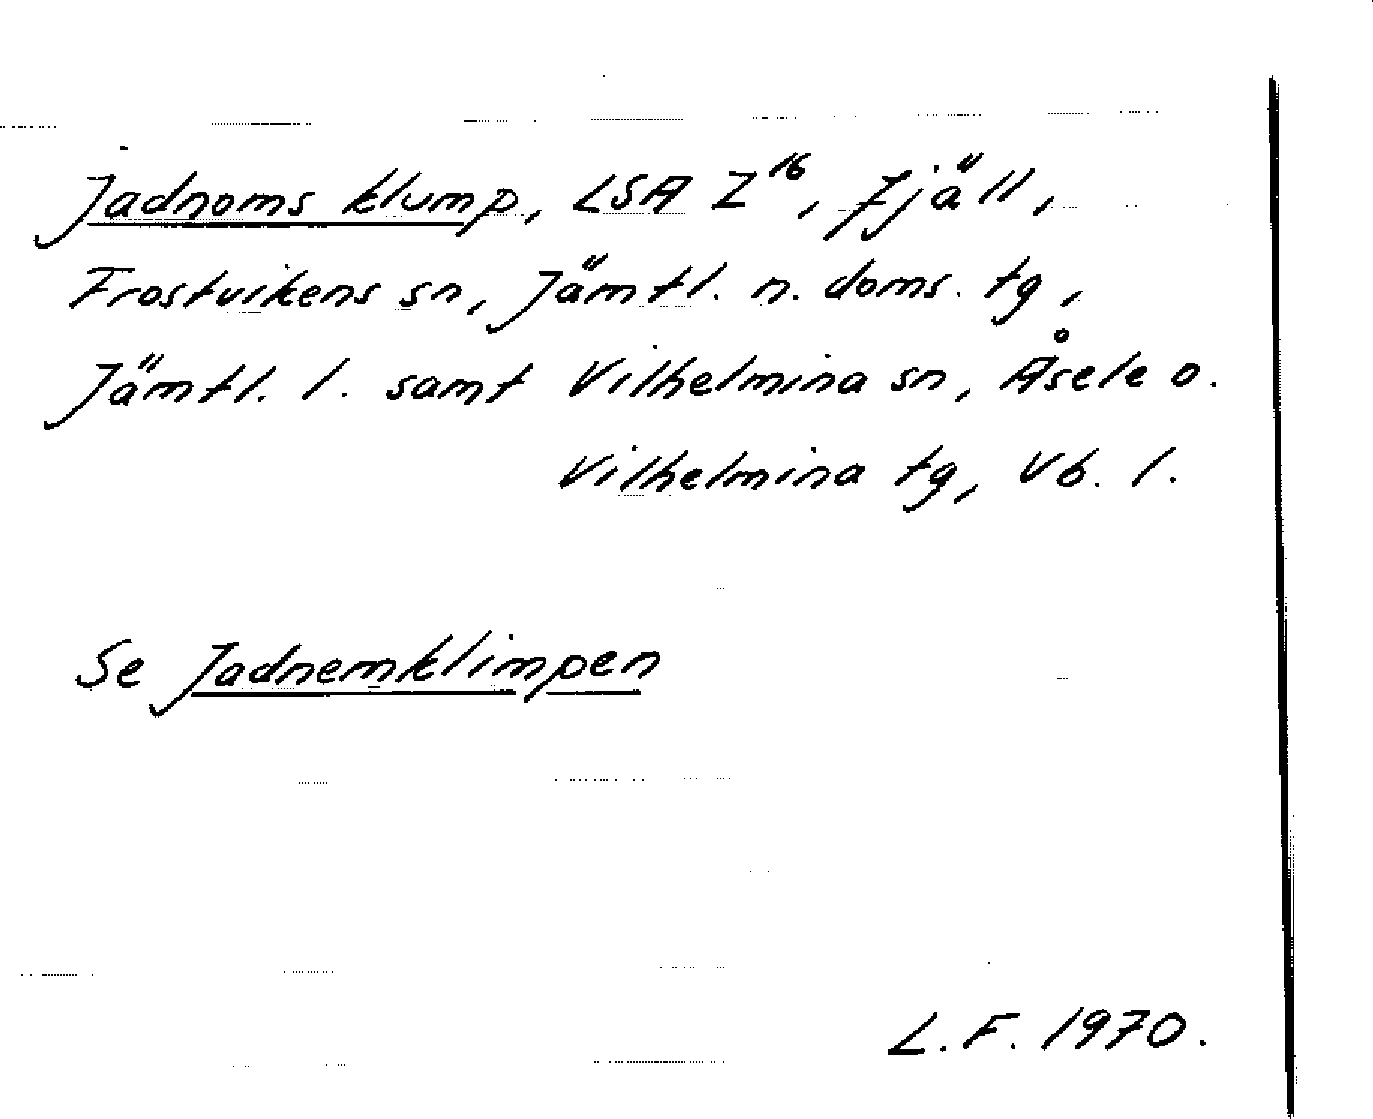 Jadnoms klump, LSA Z16, fjäll,
Frostvikens sn, Jämtl. n. doms. tg,
Jämtl. l. samt Vilhelmina sn, Åsele o.
Vilhelmina tg, Vb. l.
Se Jadnemklimpen
L.F. 1970.